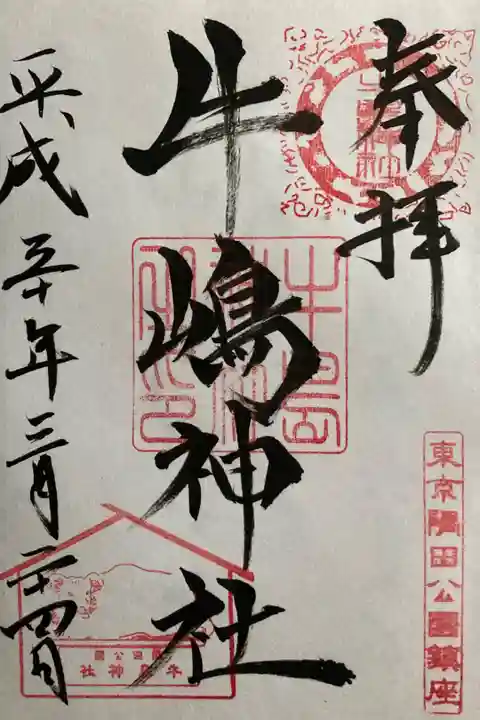 奉拝
牛嶋神社
平成三十年三月二十四日
東京隅田公園鎮座
隅田公園
牛嶋神社